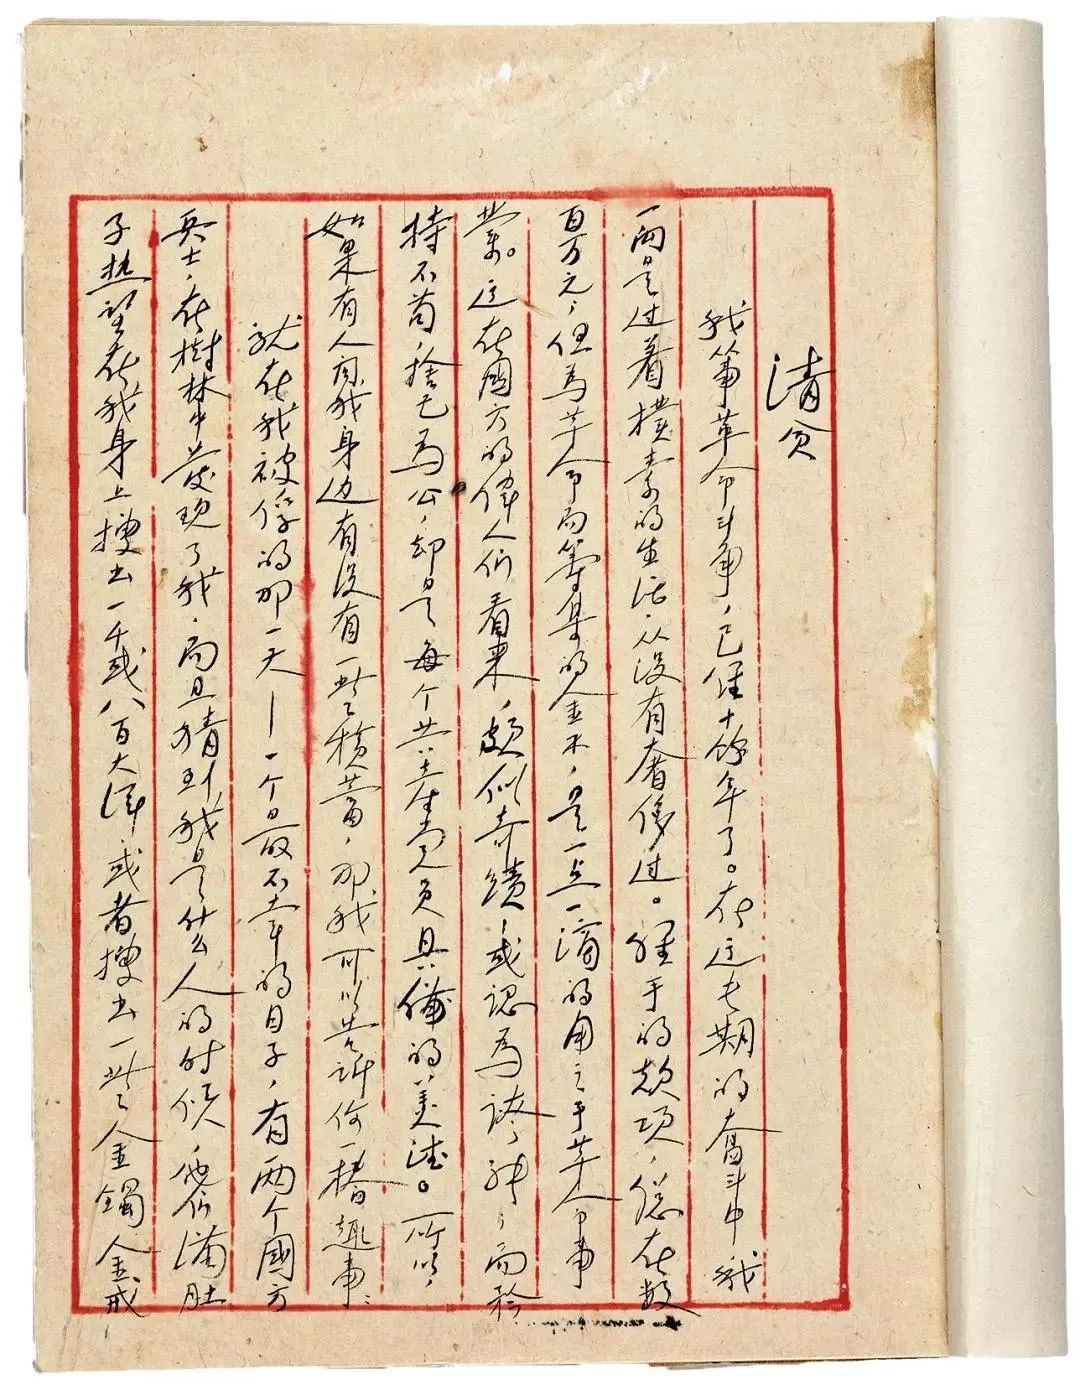 清贫
我從事革命斗争，已经十餘年了。在这长期的奮斗中，我
一向是过着樸素的生活，从没有奢侈过。經手的款项，總在数
百万元；但為革命而籌集的金錢，是一点一滴的用之于革命事
業。这在國方的偉人们看來，颇似奇蹟，或認為誇張；而矜
持不苟，捨己為公，却是每个共產党员具備的美德。所以，
如果有人问我身边有没有一些積蓄，那我可以告訴你一樁趣事：
就在我被俘的那一天——一个最不幸的日子，有两个國方
兵士，在樹林中發现了我，而且猜到我是什么人的时候，他们满肚
子热望在我身上搜出一千或八百大洋，或者搜出一些金鐲金戒